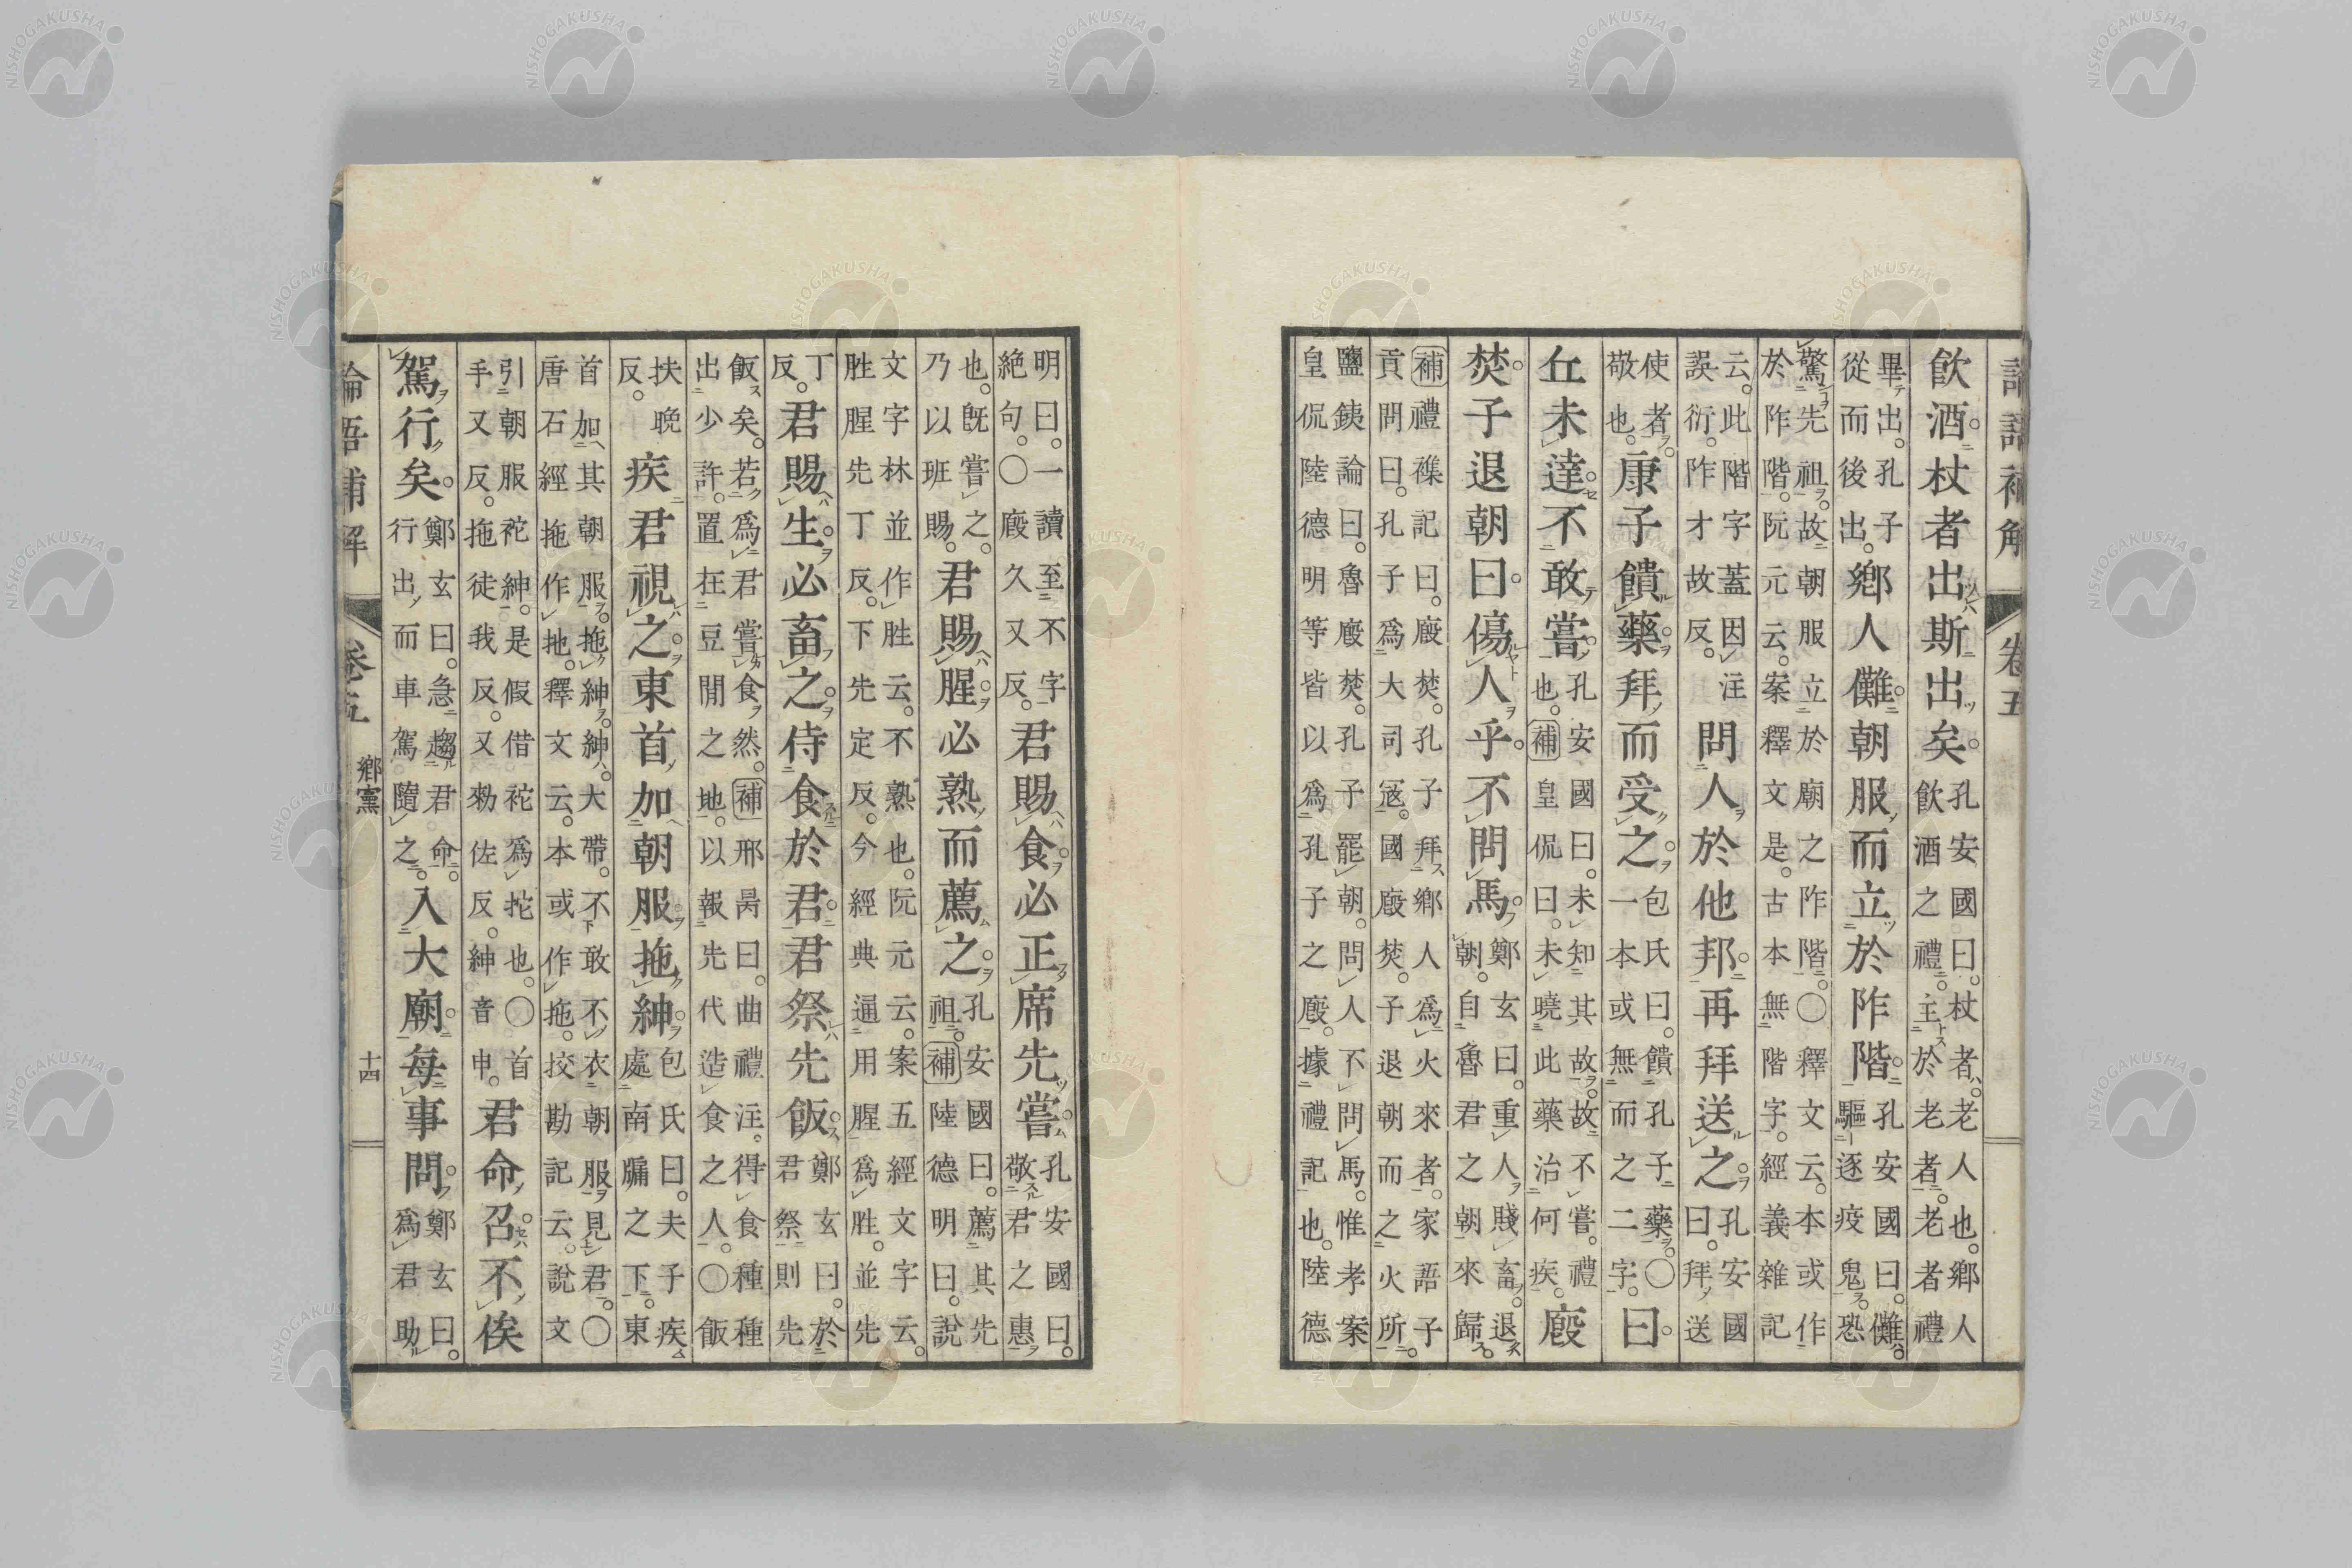 論語補解 卷五
飮酒。杖者出斯出矣。孔安國曰。杖者。老人也。鄉人飮酒之禮。主於老者。老者禮
畢出。孔子從而後出。鄉人儺。朝服而立於阼階。孔安國曰。儺。驅逐疫鬼。恐
驚先祖。故朝服立於廟之阼階。○釋文云。本或作於阼階。阮元云。案釋文是。古本無階字。經義雜記
云。此階字蓋因注誤衍。阼才故反。問人於他邦。再拜送之。孔安國曰。拜送
使者。敬也。康子饋藥。拜而受之。包氏曰。饋孔子藥。○一本或無而之二字。曰。
丘未達。不敢嘗。孔安國曰。未知其故。故不嘗。禮也。補皇侃曰。未曉此藥治何疾。廏
焚。子退朝曰。傷人乎。不問馬。鄭玄曰。重人賤畜。退朝。自魯君之朝來歸。
補禮襍記曰。廏焚。孔子拜鄉人爲火來者。家語子貢問曰。孔子爲大司寇。國廏焚。子退朝而之火所。
鹽鉄論曰。魯廏焚。孔子罷朝。問人不問馬。惟孝案皇侃陸德明等皆以爲孔子之廏。據禮記也。陸德
明曰。一讀至不字絶句。○廏久又反。君賜食。必正席先嘗。孔安國曰。敬君之惠
也。既嘗之。乃以班賜。君賜腥。必熟而薦之。孔安國曰。薦其先祖。補陸德明曰。說
文字林並作胜云。不熟也。阮元云。案五經文字云。胜腥先丁反。下先定反。今經典通用腥爲胜。並先
丁反。君賜生。必畜之。侍食於君。君祭先飯。鄭玄曰。於君祭則先
飯矣。若爲君嘗食然。補邢昺曰。曲禮注。得食種種出少許。置在豆閒之地。以報先代造食之人。○飯
扶晩反。疾君視之。東首加朝服拖紳。包氏曰。夫子疾處南牖之下。東
首加其朝服。拖紳。紳。大帶。不敢不衣朝服見君。○唐石經拖作扡。釋文云。本或作拖。挍勘記云。說文
引朝服袉紳。是假借袉爲拕也。○首手又反。拖徒我反。又勑佐反。紳音申。君命召。不俟
駕行矣。鄭玄曰。急趨君命。行出而車駕隨之。入大廟。每事問。鄭玄曰。爲君助
論語補解 卷五 鄉黨 十四
NISHOGAKUSHA